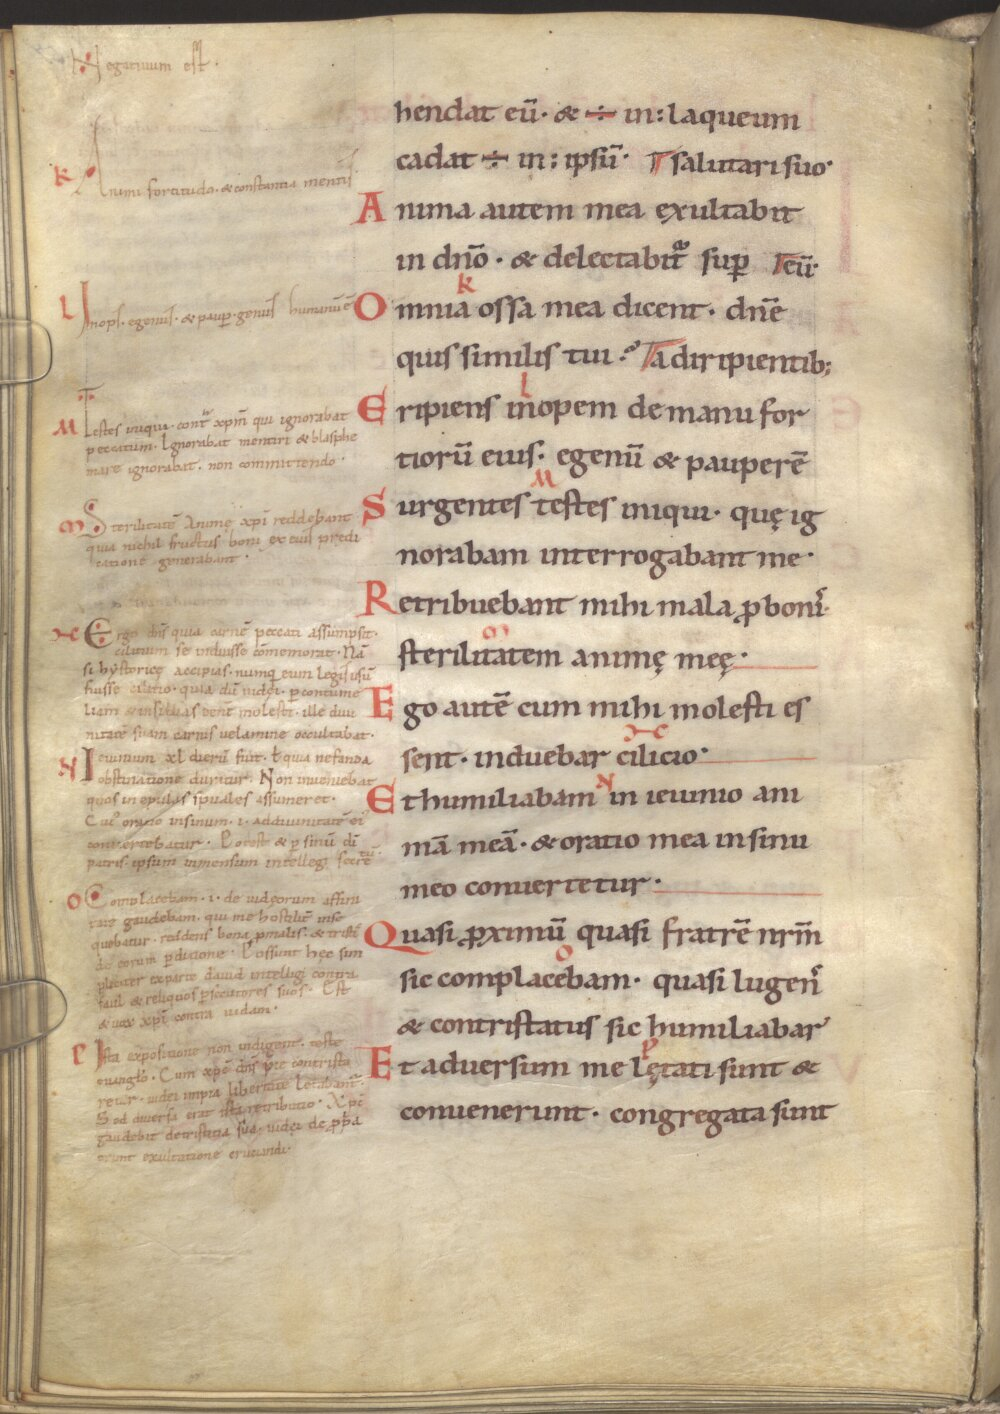 Negatiuum est.
K Animi fortitudo. & constantia mentis
L Inops. egenus. & paup. genus humanũ ẽ
M Testes iniqui. contˢ xpm̃ qui ignorabat
peccatum. Ignorabat mentiri & blasphe
mare ignorabat. non committendo.
m Sterilitatẽ Animę xpi reddebant
quia nichil fructus boni ex eius predi
catione generabant.
Ergo dñs quia carnẽ peccati assumpsit.
cilicium se induisse cõmemorat. Nã
si hystorice accipias. numq̃ eum legis usũ
fuisse cilicio. quia dũ uidei. p contume
liam & insidias erent molesti. ille diui
nitatẽ suam carnis uelamine occultabat.
N Ieiunium xl dierũ fuit. ł quia nefanda
obstinatione durictur. Non inueniebat
quos in epulas spuales assumeret.
Cui' oratio in sinum. i. ad diuinitatẽ ei'
conuertebatur. Potest & p sinũ dĩ
patris. ipsum inmensum intellegi secretũ
O Complacebam. i. de uideorum affini
tate gaudebam. qui me hostilit inse
quebatur. reddens bona p malis. & tristis
de eorum pditione. Possunt hęc sim
pliciter ex parte dauid intelligi contra
saul & reliquos psecutores suos. Est
& uox xpi contra iudam.
P Ista expositione non indigent. teste
euanglo. Cum xpc dñs pie contrista
retur. iudei impia libertate letabant.
Sed diuersa erat ista retributio. Xpc
gaudebit de tristitia sua. iudei de ppa
erunt exultatione eruendi.
hendat eũ. & ÷ in: laqueum
cadat ÷ in: ipsũ. salutari suo.
Anima autem mea exultabit
in dño. & delectabit' sup eũ.
K
Omnia ossa mea dicent. dñe
quis similis tui: a diripientib;
l
Eripiens inopem de manu for
tiorũ eius. egenũ & pauperẽ
M
Surgentes testes iniqui. quę ig
norabam interrogabant me.
Retribuebant mihi mala p bonis.
m
sterilitatem animę meę.
Ego autẽ cum mihi molesti es
sent. induebar cilicio.
N
Et humiliabam in ieiunio ani
mã meã. & oratio mea in sinu
meo conuertetur.
Quasi pximũ quasi fratrẽ nrm̃
o
sic complacebam. quasi lugens
& contristatus sic humiliabar
P
Et aduersum me lętati sunt &
conuenerunt. congregata sunt